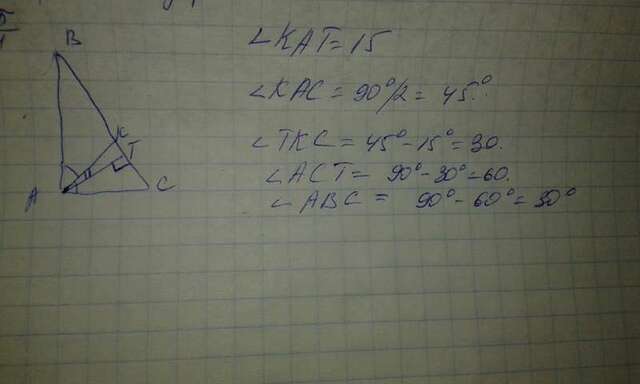 B
∠KAT = 15
∠KAC = 90°/2 = 45.°
K
T
∠TKC = 45° - 15° = 30.
∠ACT = 90° - 30° = 60.
A
C
∠ABC = 90° - 60° = 30°